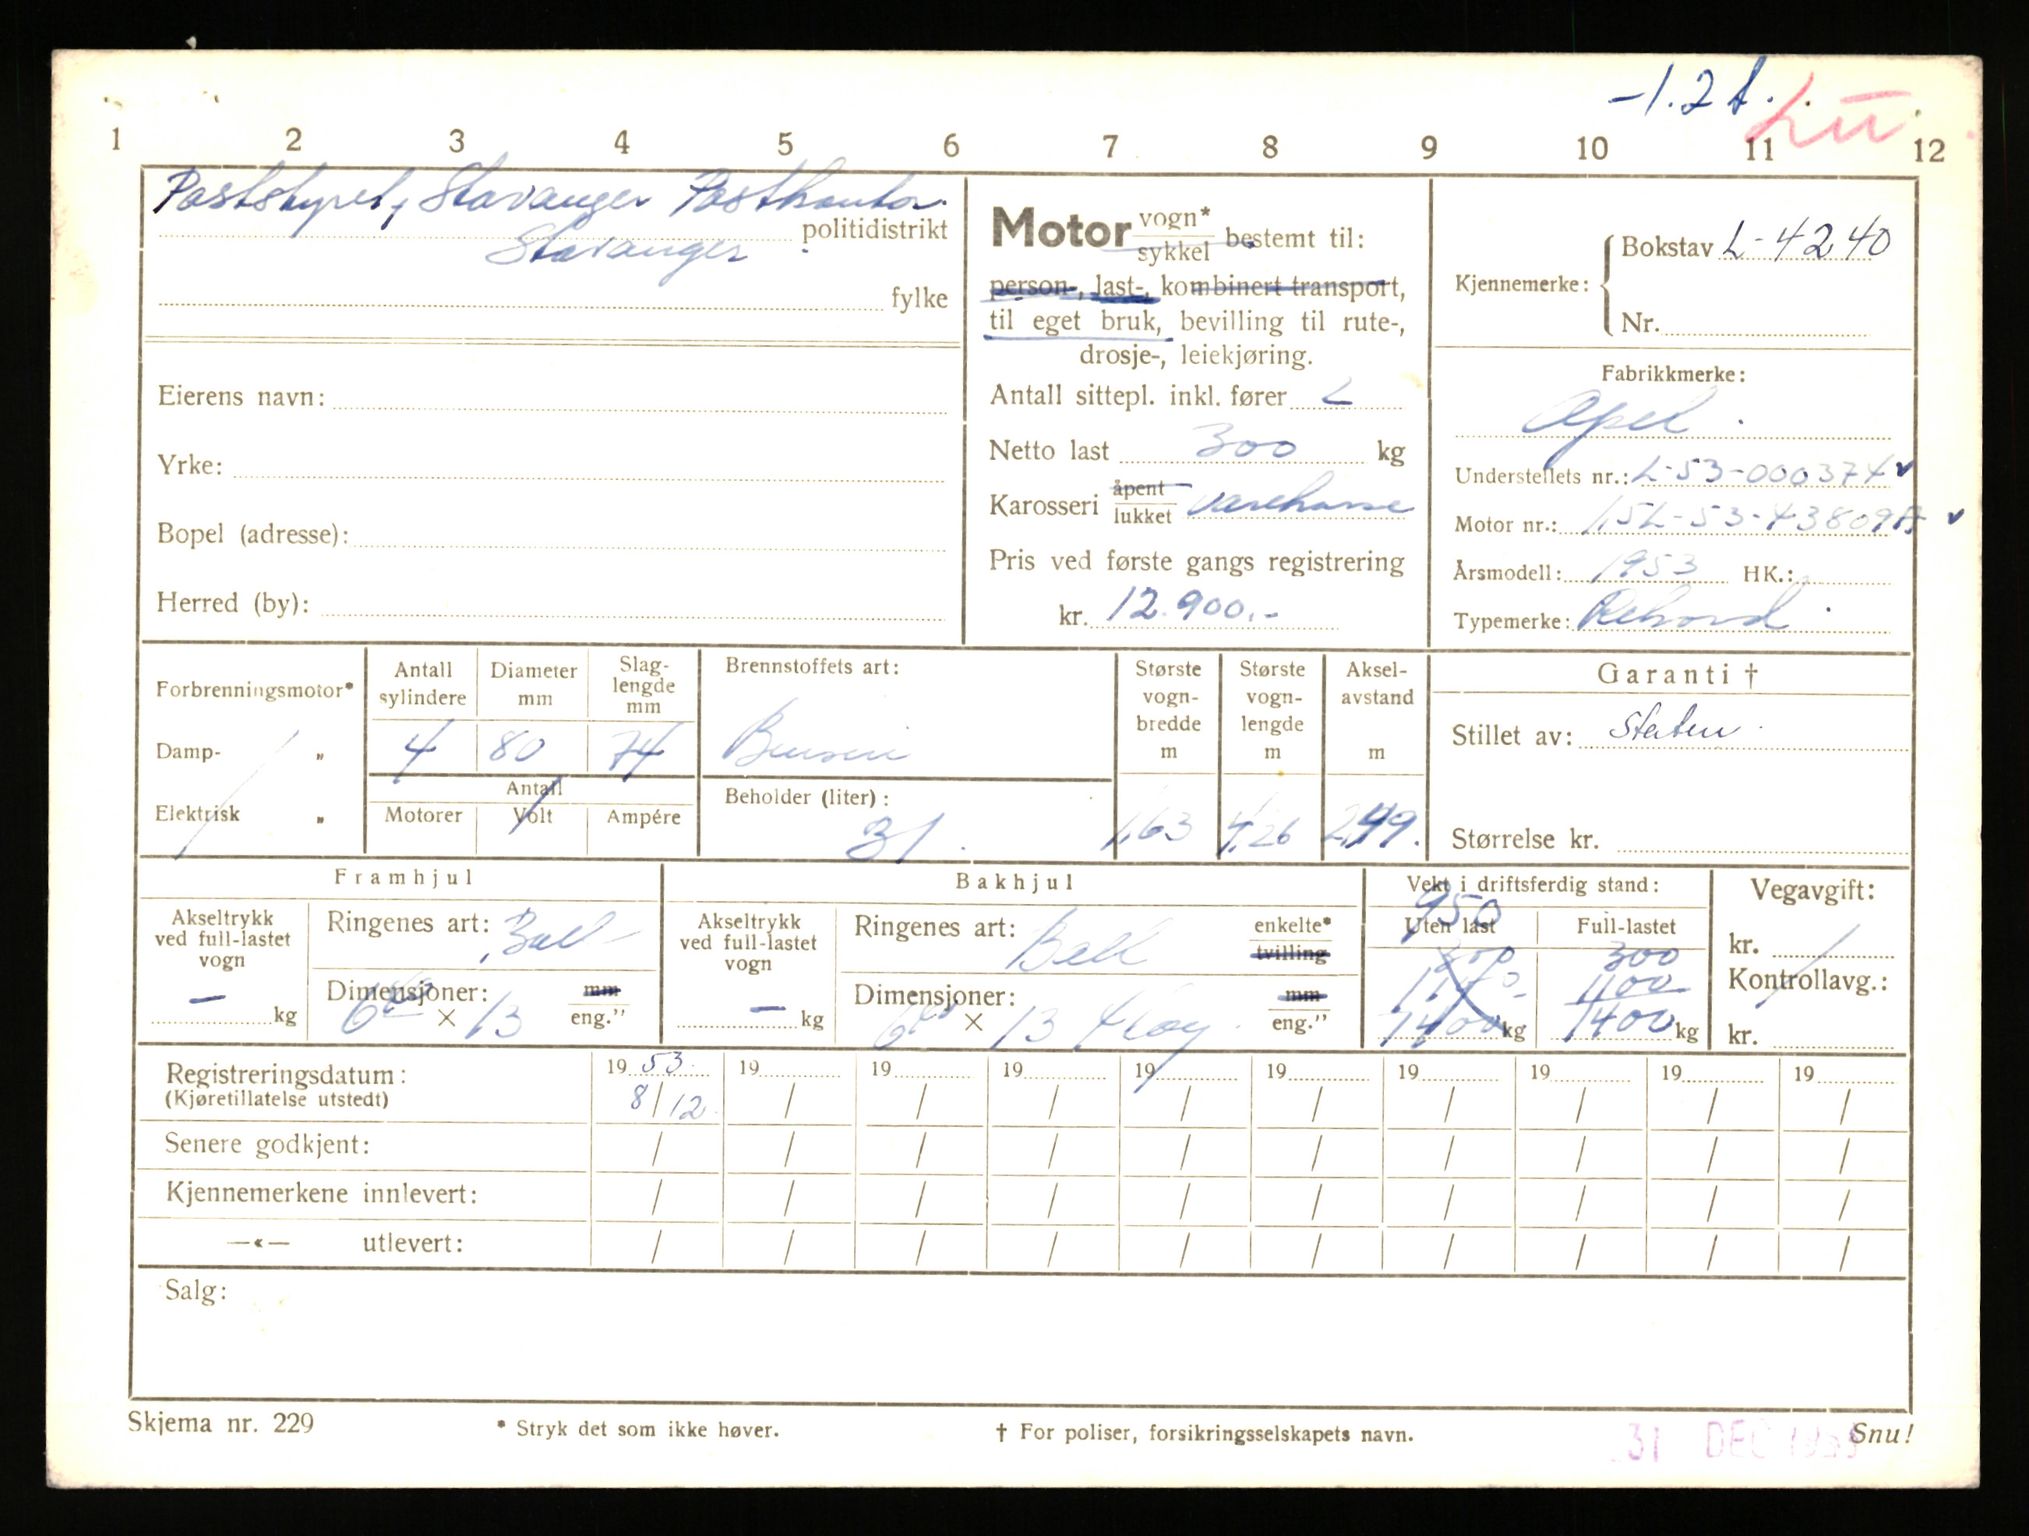 -1.2t.
1 2 3 4 5 6 7 8 9 10 11 12
Poststyret, Stavanger Postkontor.
politidistrikt
Stavanger
fylke
Eierens navn:
Yrke:
Bopel (adresse):
Herred (by):
Motor vogn* sykkel bestemt til:
person-, last-, kombinert transport,
til eget bruk, bevilling til rute-,
drosje-, leiekjøring.
Antall sittepl. inkl. fører 2
Netto last 300 kg
Karosseri åpent lukket varekasse
Pris ved første gangs registrering
kr. 12.900.-
Kjennemerke: Bokstav L-4240
Nr.
Fabrikkmerke:
Opel
Understellets nr.: L-53-000374
Motor nr.: 1,5L-53-43809A
Årsmodell: 1953 HK.:
Typemerke: Rekord
Forbrenningsmotor*
Damp- „
Elektrisk „
Antall sylindere 4
Diameter mm 80
Slaglengde mm 74
Antall
Motorer Volt Ampére
Brennstoffets art:
Bensin
Beholder (liter):
31.
Største vognbredde m 1,63
Største vognlengde m 4,26
Akselavstand m 2,49.
Garanti †
Stillet av: Staten
Størrelse kr.
Framhjul
Akseltrykk ved full-lastet vogn
- kg
Ringenes art: Ball
Dimensjoner: mm eng."
6 40 × 13
Bakhjul
Akseltrykk ved full-lastet vogn
- kg
Ringenes art: Ball enkelte* tvilling
Dimensjoner: mm eng."
6 40 × 13 4 lag.
Vekt i driftsferdig stand:
950
Uten last Full-lastet
300 300
1100 1100
1400 kg 1400 kg
Vegavgift:
kr.
Kontrollavg.:
kr.
Registreringsdatum: 19 53. 19 19 19 19 19 19 19 19 19
(Kjøretillatelse utstedt) 8/12. / / / / / / / / /
Senere godkjent: / / / / / / / / / /
Kjennemerkene innlevert: / / / / / / / / / /
—«— utlevert: / / / / / / / / / /
Salg:
Skjema nr. 229 * Stryk det som ikke høver. † For poliser, forsikringsselskapets navn. Snu!
31 DEC 1953